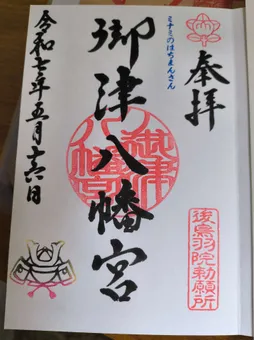 奉拝
後鳥羽院勅願所
ミナミのはちまんさん
御津八幡宮
御津八幡宮
令和七年五月十六日